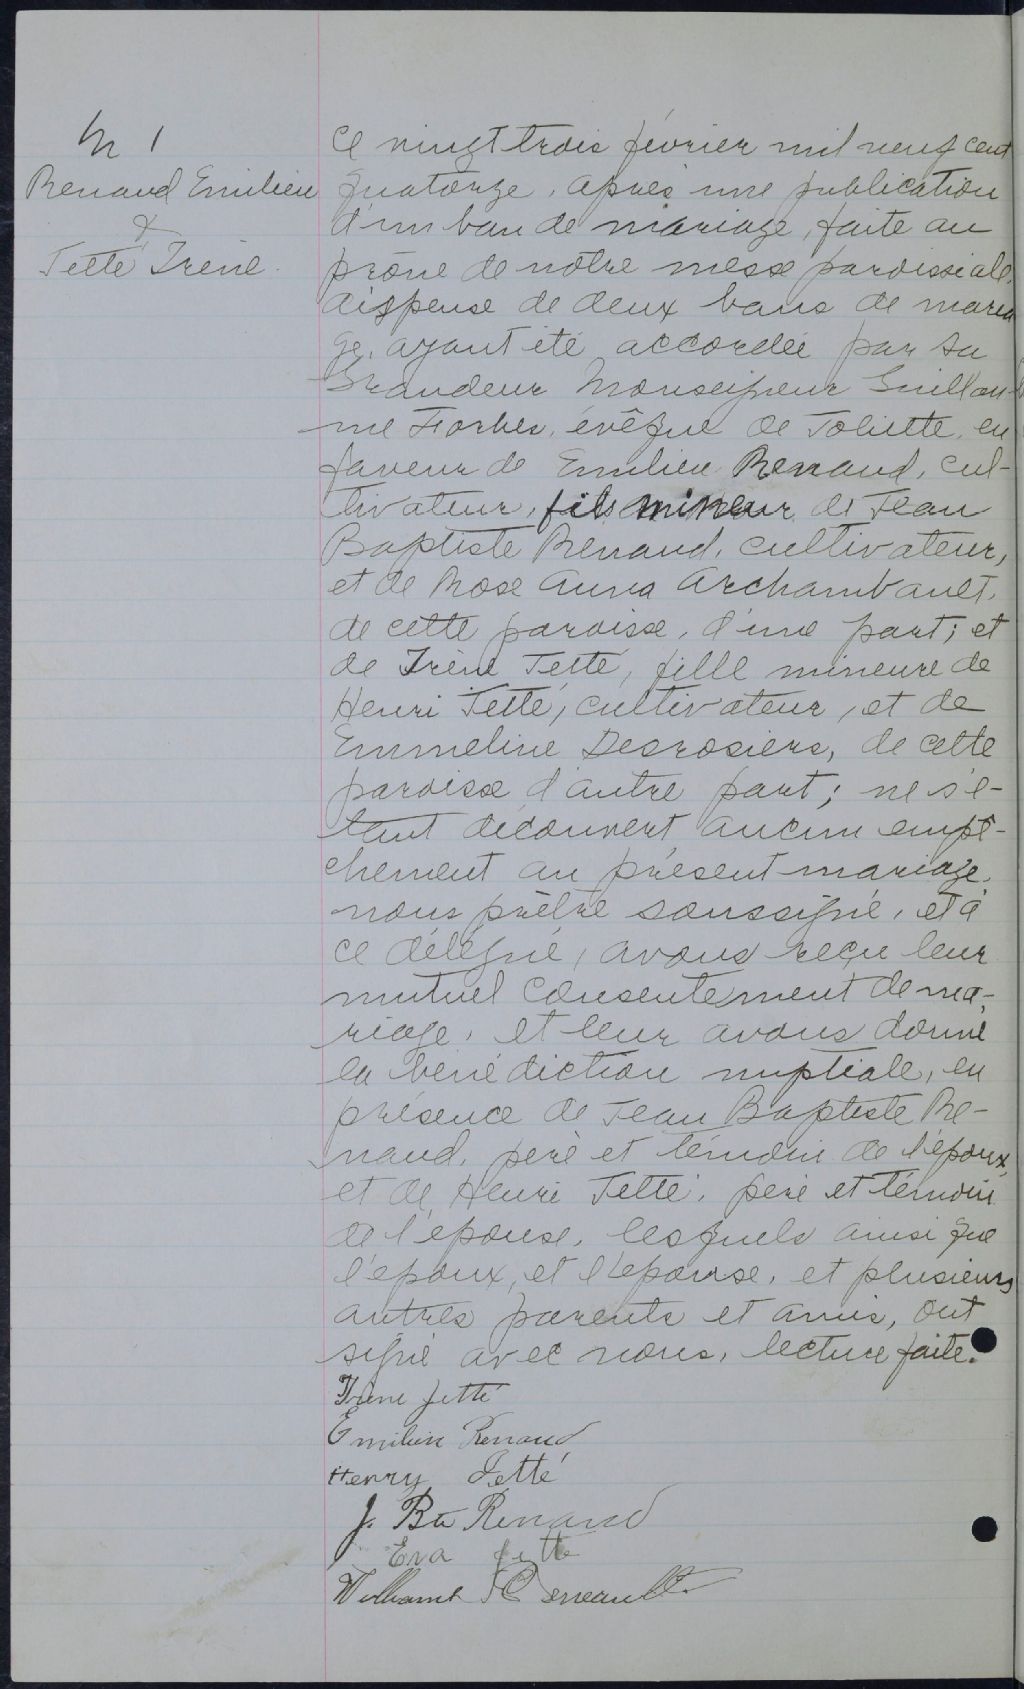 M 1
Renaud Emilien
&
Jetté Irène.
Ce vingt trois février mil neuf cent
quatorze, après une publication
d'un ban de mariage, faite au
prône de nôtre messe paroissiale,
dispense de deux bans de maria
ge, ayant été accordée par Sa
Grandeur Monseigneur Guillau-
me Forbes, évêque de Joliette, en
faveur de Emilien Renaud, cul-
tivateur, fils mineur de Jean
Baptiste Renaud, cultivateur,
et de Rose Anna Archambault,
de cette paroisse, d'une part; et
de Irène Jetté, fille mineure de
Henri Jetté, cultivateur, et de
Emmeline Desrosiers, de cette
paroisse d'autre part; ne s'é-
tant découvert aucun empê-
chement au présent mariage,
nous prêtre soussigné, et à
ce délégué, avons reçu leur
mutuel consentement de ma-
riage, et leur avons donné
la bénédiction nuptiale, en
présence de Jean Baptiste Re-
naud, père et témoin de l'époux,
et de Henri Jetté, père et témoin
de l'épouse, lesquels ainsi que
l'époux, et l'épouse, et plusieurs
autres parents et amis, ont
signé avec nous, lecture faite.
Irène Jetté
Emilien Renaud
Henry Jetté
J. Bte Renaud
Eva Jette